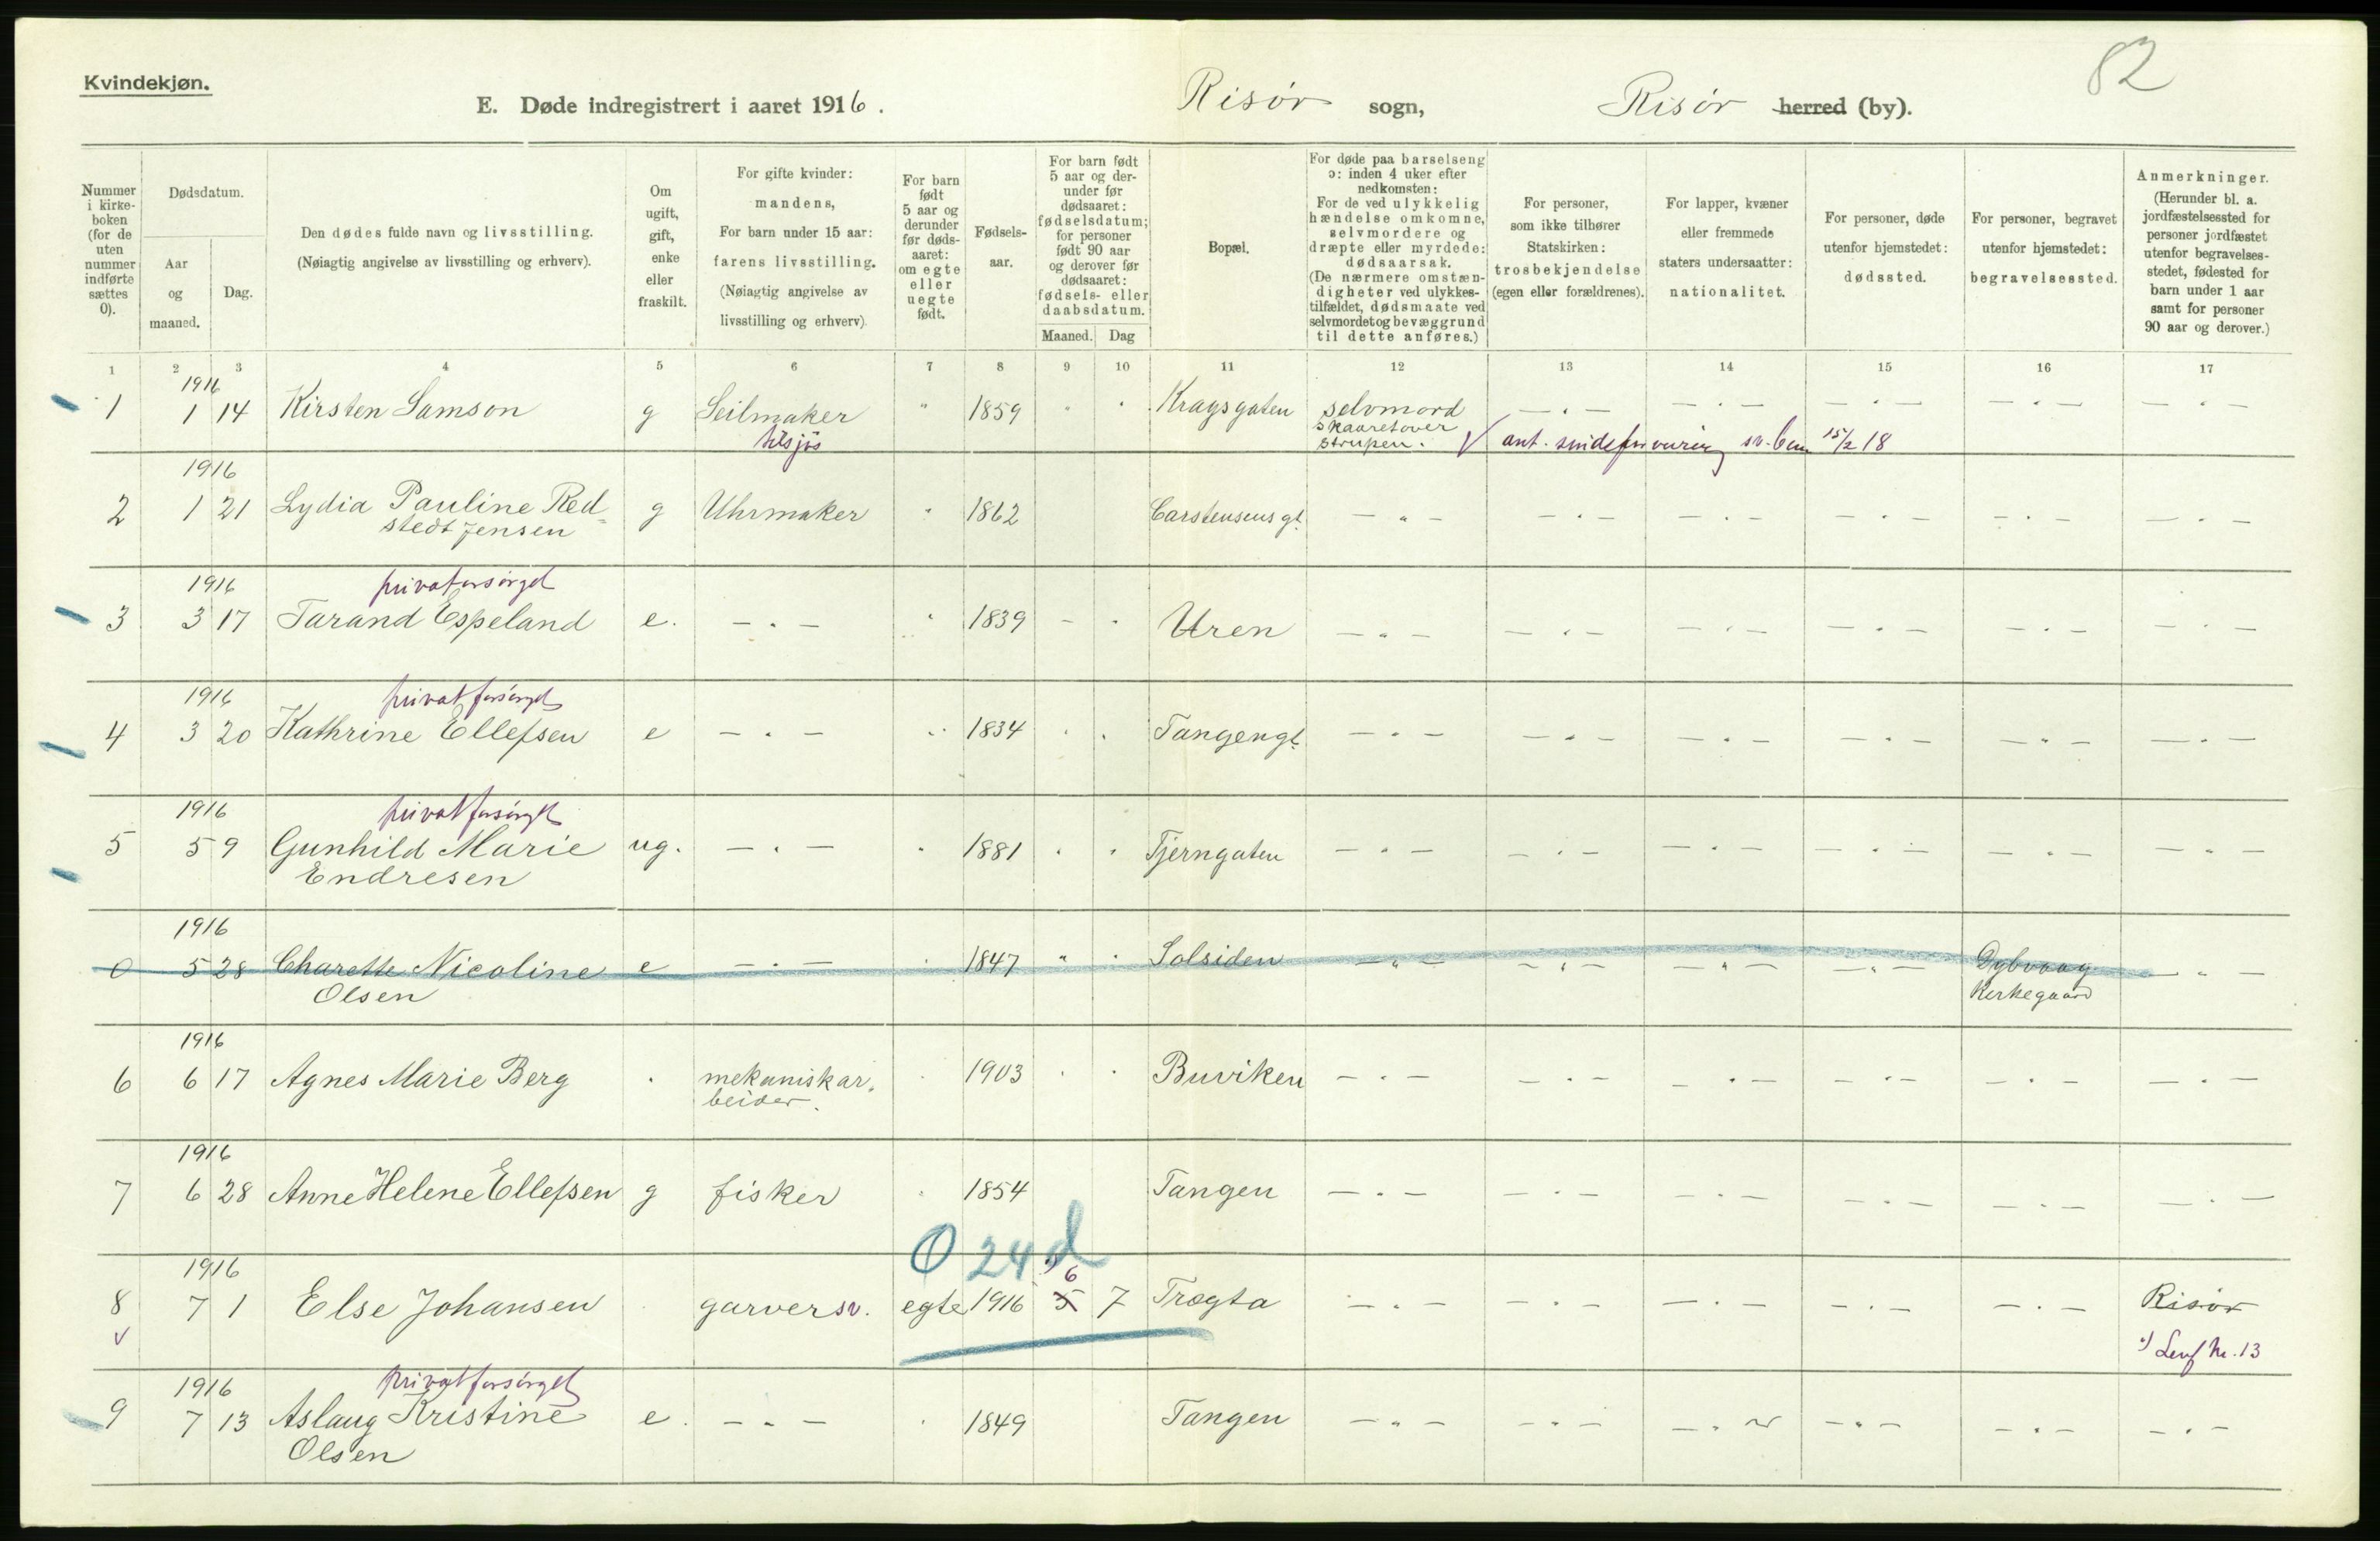 82
Kvindekjøn.
E. Døde indregistrert i aaret 1916. Risør sogn, Risør herred (by).
Nummer i kirkeboken (for de uten nummer indførte sættes 0).
Dødsdatum.
Aar og maaned.
Dag.
Den dødes fulde navn og livsstilling.
(Nøiagtig angivelse av livsstilling og erhverv).
Om ugift, gift, enke eller fraskilt.
For gifte kvinder: mandens,
For barn under 15 aar: farens livsstilling.
(Nøiagtig angivelse av livsstilling og erhverv).
For barn født 5 aar og derunder før dødsaaret: om egte eller uegte født.
Fødselsaar.
For barn født 5 aar og derunder før dødsaaret: fødselsdatum; for personer født 90 aar og derover før dødsaaret: fødsels- eller daabsdatum.
Maaned. Dag
Bopæl.
For døde paa barselseng ɔ: inden 4 uker efter nedkomsten:
For de ved ulykkelig hændelse omkomne, selvmordere og dræpte eller myrdede: dødsaarsak.
(De nærmere omstændigheter ved ulykkestilfældet, dødsmaate ved selvmordet og bevæggrund til dette anføres.)
For personer, som ikke tilhører Statskirken: trosbekjendelse (egen eller forældrenes).
For lapper, kvæner eller fremmede staters undersaatter: nationalitet.
For personer, døde utenfor hjemstedet: dødssted.
For personer, begravet utenfor hjemstedet: begravelsessted.
Anmerkninger.
(Herunder bl. a. jordfæstelsessted for personer jordfæstet utenfor begravelsesstedet, fødested for barn under 1 aar samt for personer 90 aar og derover.)
1 2 3 4 5 6 7 8 9 10 11 12 13 14 15 16 17
1916
1 1 14 Kirsten Samson g Seilmaker " 1859 " " Kragsgaten selvmord — " — — " — — " — — " — — " —
tilsjøs skaaret over
strupen. ant. sv. 15/2 18
1916
2 1 21 Lydia Pauline Red= g Uhrmaker " 1862 Carstensensgt. — " — — " — — " — — " — — " — — " —
stedt Jensen
1916 privatforsørget
3 3 17 Tarand Espeland e. — " — " 1839 - " Uren — " — — " — — " — — " — — " — — " —
1916 privat forsørget
4 3 20 Kathrine Ellefsen e — " — " 1834 " " Tangengt. — " — — " — — " — — " — — " — — " —
1916 privat forsørget
5 5 9 Gunhild Marie ug. — " — " 1881 " " Tjerngaten — " — — " — — " — — " — — " — — " —
Endresen
1916
0 5 28 Charette Nicoline e — " — " 1847 " " Solsiden — " — — " — — " — — " — Dybvaag — " —
Olsen Kirkegaard
1916
6 6 17 Agnes Marie Berg " mekaniskar- " 1903 " " Buviken — " — — " — — " — — " — — " — — " —
beider.
1916
7 6 28 Anne Helene Ellefsen g fisker " 1854 Tangen — " — — " — — " — — " — — " — — " —
0 24 d
1916 6
8 7 1 Else Johansen garversv. egte 1916 5 7 Tragta — " — — " — — " — — " — — " — Risør
v nr. 13
1916 privat forsørget
9 7 13 Aslaug Kristine e. — " — " 1849 Tangen — " — — " — — " — — " — — " — — " —
Olsen